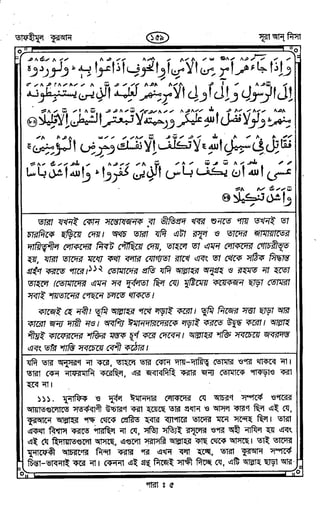 তাফহীমুল কুরআন
১৫৯
সূরা আন্ নিসা
وَإِذَا جَاءَهُمْ أَمْرٌ مِّنَ الْأَمْنِ أَوِ الْخَوْفِ أَذَاعُوا بِهِ ۖ وَلَوْ رَدُّوهُ
إِلَى الرَّسُولِ وَإِلَىٰ أُولِي الْأَمْرِ مِنْهُمْ لَعَلِمَهُ الَّذِينَ يَسْتَنبِطُونَهُ
مِنْهُمْ ۗ وَلَوْلَا فَضْلُ اللَّهِ عَلَيْكُمْ وَرَحْمَتُهُ لَاتَّبَعْتُمُ الشَّيْطَانَ إِلَّا قَلِيلًا ﴿٨٣﴾
فَقَاتِلْ فِي سَبِيلِ اللَّهِ لَا تُكَلَّفُ إِلَّا نَفْسَكَ وَحَرِّضِ الْمُؤْمِنِينَ
عَسَى اللَّهُ أَن يَكُفَّ بَأْسَ الَّذِينَ كَفَرُوا ۚ وَاللَّهُ أَشَدُّ بَأْسًا
وَأَشَدُّ تَنكِيلًا ﴿٨٤﴾
তারা যখনই কোন সন্তোষজনক বা ভীতিপ্রদ খবর শুনতে পায় তখনই তা
চারদিকে ছড়িয়ে দেয়। অথচ তারা যদি এটা রসূল ও তাদের জামায়াতের
দায়িত্বশীল লোকদের নিকট পৌঁছিয়ে দেয়, তাহলে তা এমন লোকদের গোচরীভূত
হয়, যারা তাদের মধ্যে কথা বলার যোগ্যতা রাখে এবং তা থেকে সঠিক সিদ্ধান্ত
গ্রহণ করতে পারে।১১২ তোমাদের প্রতি যদি আল্লাহর অনুগ্রহ ও রহমত না হতো
তাহলে (তোমাদের এমন সব দুর্বলতা ছিল যে) মুষ্টিমেয় কয়েকজন ছাড়া তোমরা
সবাই শয়তানের পেছনে চলতে থাকতে।
কাজেই হে নবী! তুমি আল্লাহর পথে লড়াই করো। তুমি নিজের সত্তা ছাড়া আর
কারো জন্য দায়ী নও। অবশ্যি ঈমানদারদেরকে লড়াই করতে উদ্বুদ্ধ করো। আল্লাহ
শীঘ্রই কাফেরদের শক্তির মস্তক চূর্ণ করে দেবেন। আল্লাহর শক্তি সবচেয়ে জবরদস্ত
এবং তাঁর শাস্তি সবচেয়ে বেশী কঠোর।
যদি তার অনুসরণ না করে, তাহলে তার কোন দায়-দায়িত্ব তোমার ওপর থাকবে না।
তারা কেন নাফরমানি করেছিল, এর জবাবদিহি করার জন্য তোমাকে পাকড়াও করা
হবে না।
১১১. মুনাফিক ও দুর্বল ঈমানদার লোকদের যে আচরণ সম্পর্কে ওপরের
আয়াতগুলোতে সতর্কবাণী উচ্চারণ করা হয়েছে তার প্রধান ও আসল কারণ ছিল এই যে,
কুরআনে আল্লাহর পক্ষ থেকে প্রেরিত হবার ব্যাপারে তাদের মনে সন্দেহ ছিল। তারা
একথা বিশ্বাস করতে পারছিল না যে, সত্যি সত্যিই রসূলের ওপর অহী নাযিল হয় এবং
এই যে হিদায়াতগুলো আসছে, এগুলো সরাসরি আল্লাহর কাছ থেকে আসছে। তাই তাদের
মুনাফেকী আচরণের নিন্দা করার পর এখন বলা হচ্ছে, তারা কুরআন সম্পর্কে
চিন্তা-ভাবনাই করে না। কেননা এই গ্রন্থ নিজেই সাক্ষী দিচ্ছে যে, এটি আল্লাহ ছাড়া আর
পারা ঃ ৫